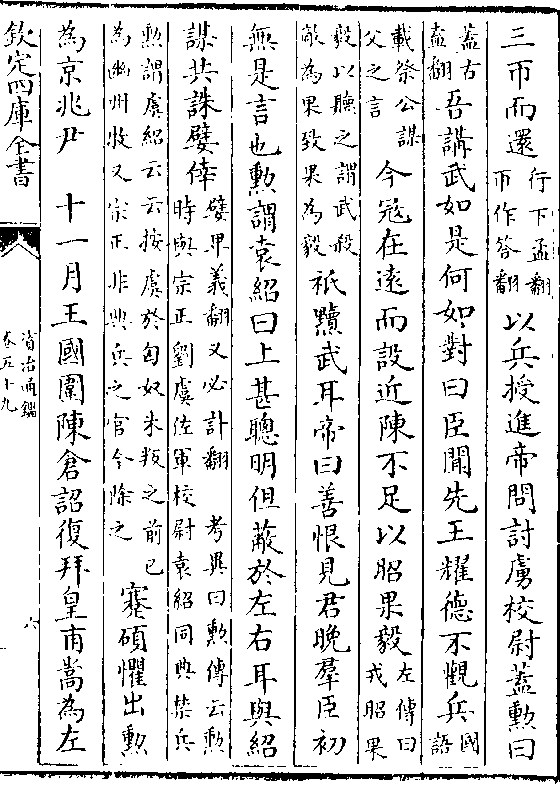 三帀而還行下孟翻帀作答翻以兵授進帝問討虜校尉蓋勲曰
蓋古盍翻吾講武如是何如對曰臣聞先王耀德不觀兵國語
載祭公謀父之言今冦在逺而設近陳不足以昭果毅左傳曰戎昭果
毅以聽之謂武殺敵為果致果為毅祇黷武耳帝曰善恨見君晚羣臣初
無是言也勲謂袁紹曰上甚聰明但蔽於左右耳與紹
謀共誅嬖倖嬖卑義翻又必計翻考異曰勲傳云勲時與宗正劉虞佐軍校尉袁紹同典禁兵
勲謂虞紹云云按虞於匈奴未叛之前已為幽州牧又宗正非典兵之官今除之蹇碩懼出勲
為京兆尹 十一月王國圍陳倉詔復拜皇甫嵩為左
欽定四庫全書
資治通鑑
卷五十九
六